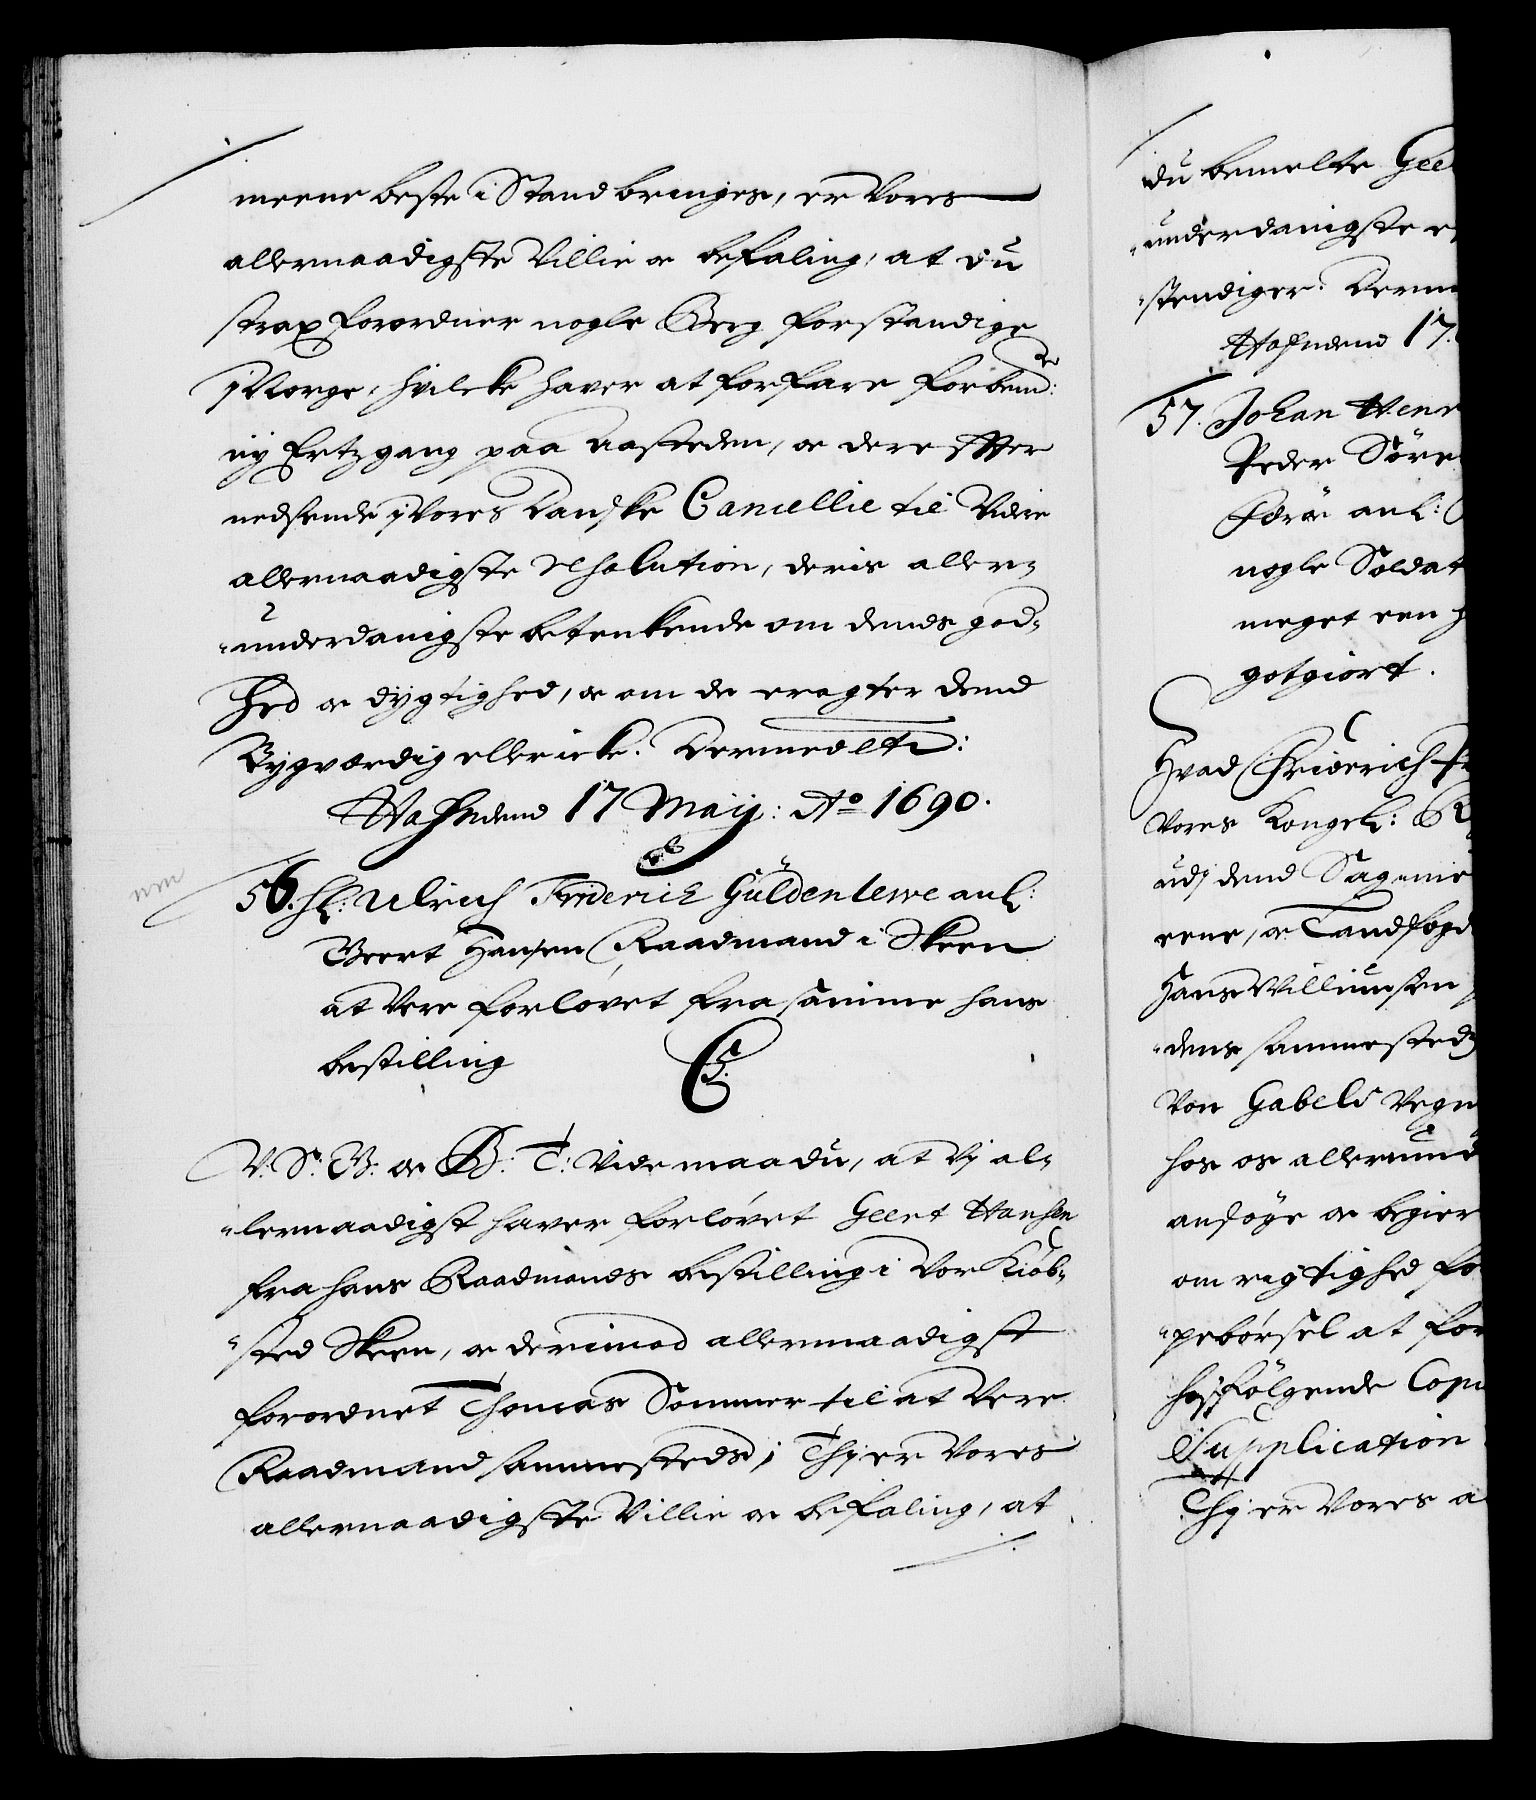 meene beste i Stand bringes, er Vores
allernaadigste Villie oc befaling, at du
strax forordner nogle Berg forstandige
j Norge, hvilcke haver at forfare forbemd:te
ny Ertzgang paa Aasteden, oc derefter
nedsende j Vores Danske Cancellie til Videre
allernaadigste Resolution, deris aller-
-underdanigste betenkende om dends god-
hed oc dygtighed, oc om de eragter dend
Bygverdig eller icke. Dermed etc:
Hafn dend 17 Maij: Ao 1690.
56. Hl: Ulrich Friderich Güldenlewe anl:
Geert Hansen Raadmand i Skeen
at Vere forlovet fra samme hans
bestilling
C5.
V: S: G: oc B: T: Vide maa du, at Vj al-
-lernaadigst haver forlovet Geert Hansen
fra hans Raadmands bestilling i Vor Kiøb-
-sted Skeen, oc derimod allernaadigst
forordnet Thomas Sommer til at Vere
Raadmand sammesteds; Thj er Vores
allernaadigste Villie oc befaling, at
du bemelte Gee
-underdanigste
-stendiger. Derm
Hafn dend 17.
57. Johan Henr
Peder Søre
Færøe anl:
nogle Soldat
meget een
gotgiort.
Hvad Friderich
Vores Kongel:
udj dend Sag
eene, oc Landfogd
Hans Willumsen
-dens sammesteds
Von Gabels Vegn
hos os allerund
ansøge oc begier
om rigtighed fo
-pebørsel at for
hosfølgende Copi
Supplication
Thj er Vores a